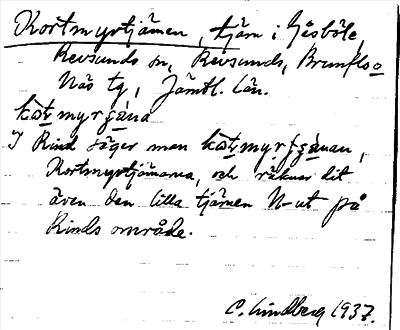 Kortmyrtjärnen, tjärn i Gåsböle,
Revsunds sn, Revsunds, Brunflo o
Näs tg, Jämtl. län.
I Rind säger man
Kortmyrtjärnarna, och räknar dit
även den lilla tjärnen N-ut på
Rinds område.
C. Lindberg 1937.